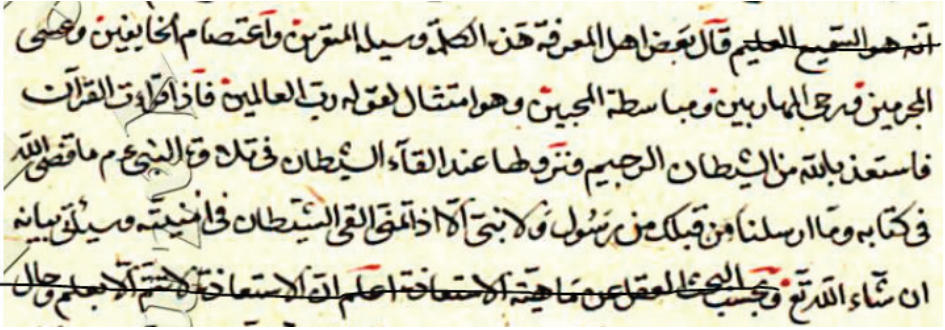 انه هو السميع العليم قال بعض اهل المعرفة هذه الكلمة وسيلة المتقربين واعتصام الخايفين
المجرمين ورجى الهاربين ومباسطة المحبين وهو امتثال لقوله رب العالمين فاذا قراءت القرآن
فاستعذ بالله من الشيطان الرجيم ونزولها عند القآء الشيطان فى تلاوة النبى ع م ما قضى الله
فى كتابه وما ارسلنا من قبلك من رسول ولا نبى الا اذا تمنى القى الشيطان فى امنيته وسيئلى بيانه
ان شاء الله تع وبحسب البحث العقل عن ماهية الاستعاذة اعلم ان الاستعاذة لا تتم الا بعلم وحال